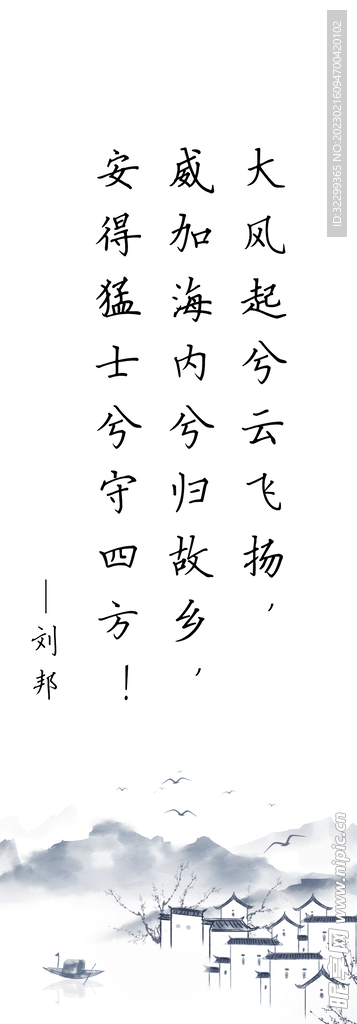 大风起兮云飞扬，
威加海内兮归故乡，
安得猛士兮守四方！
—刘邦
ID:32299365 NO:20230216094700420102
昵图网 www.nipic.cn